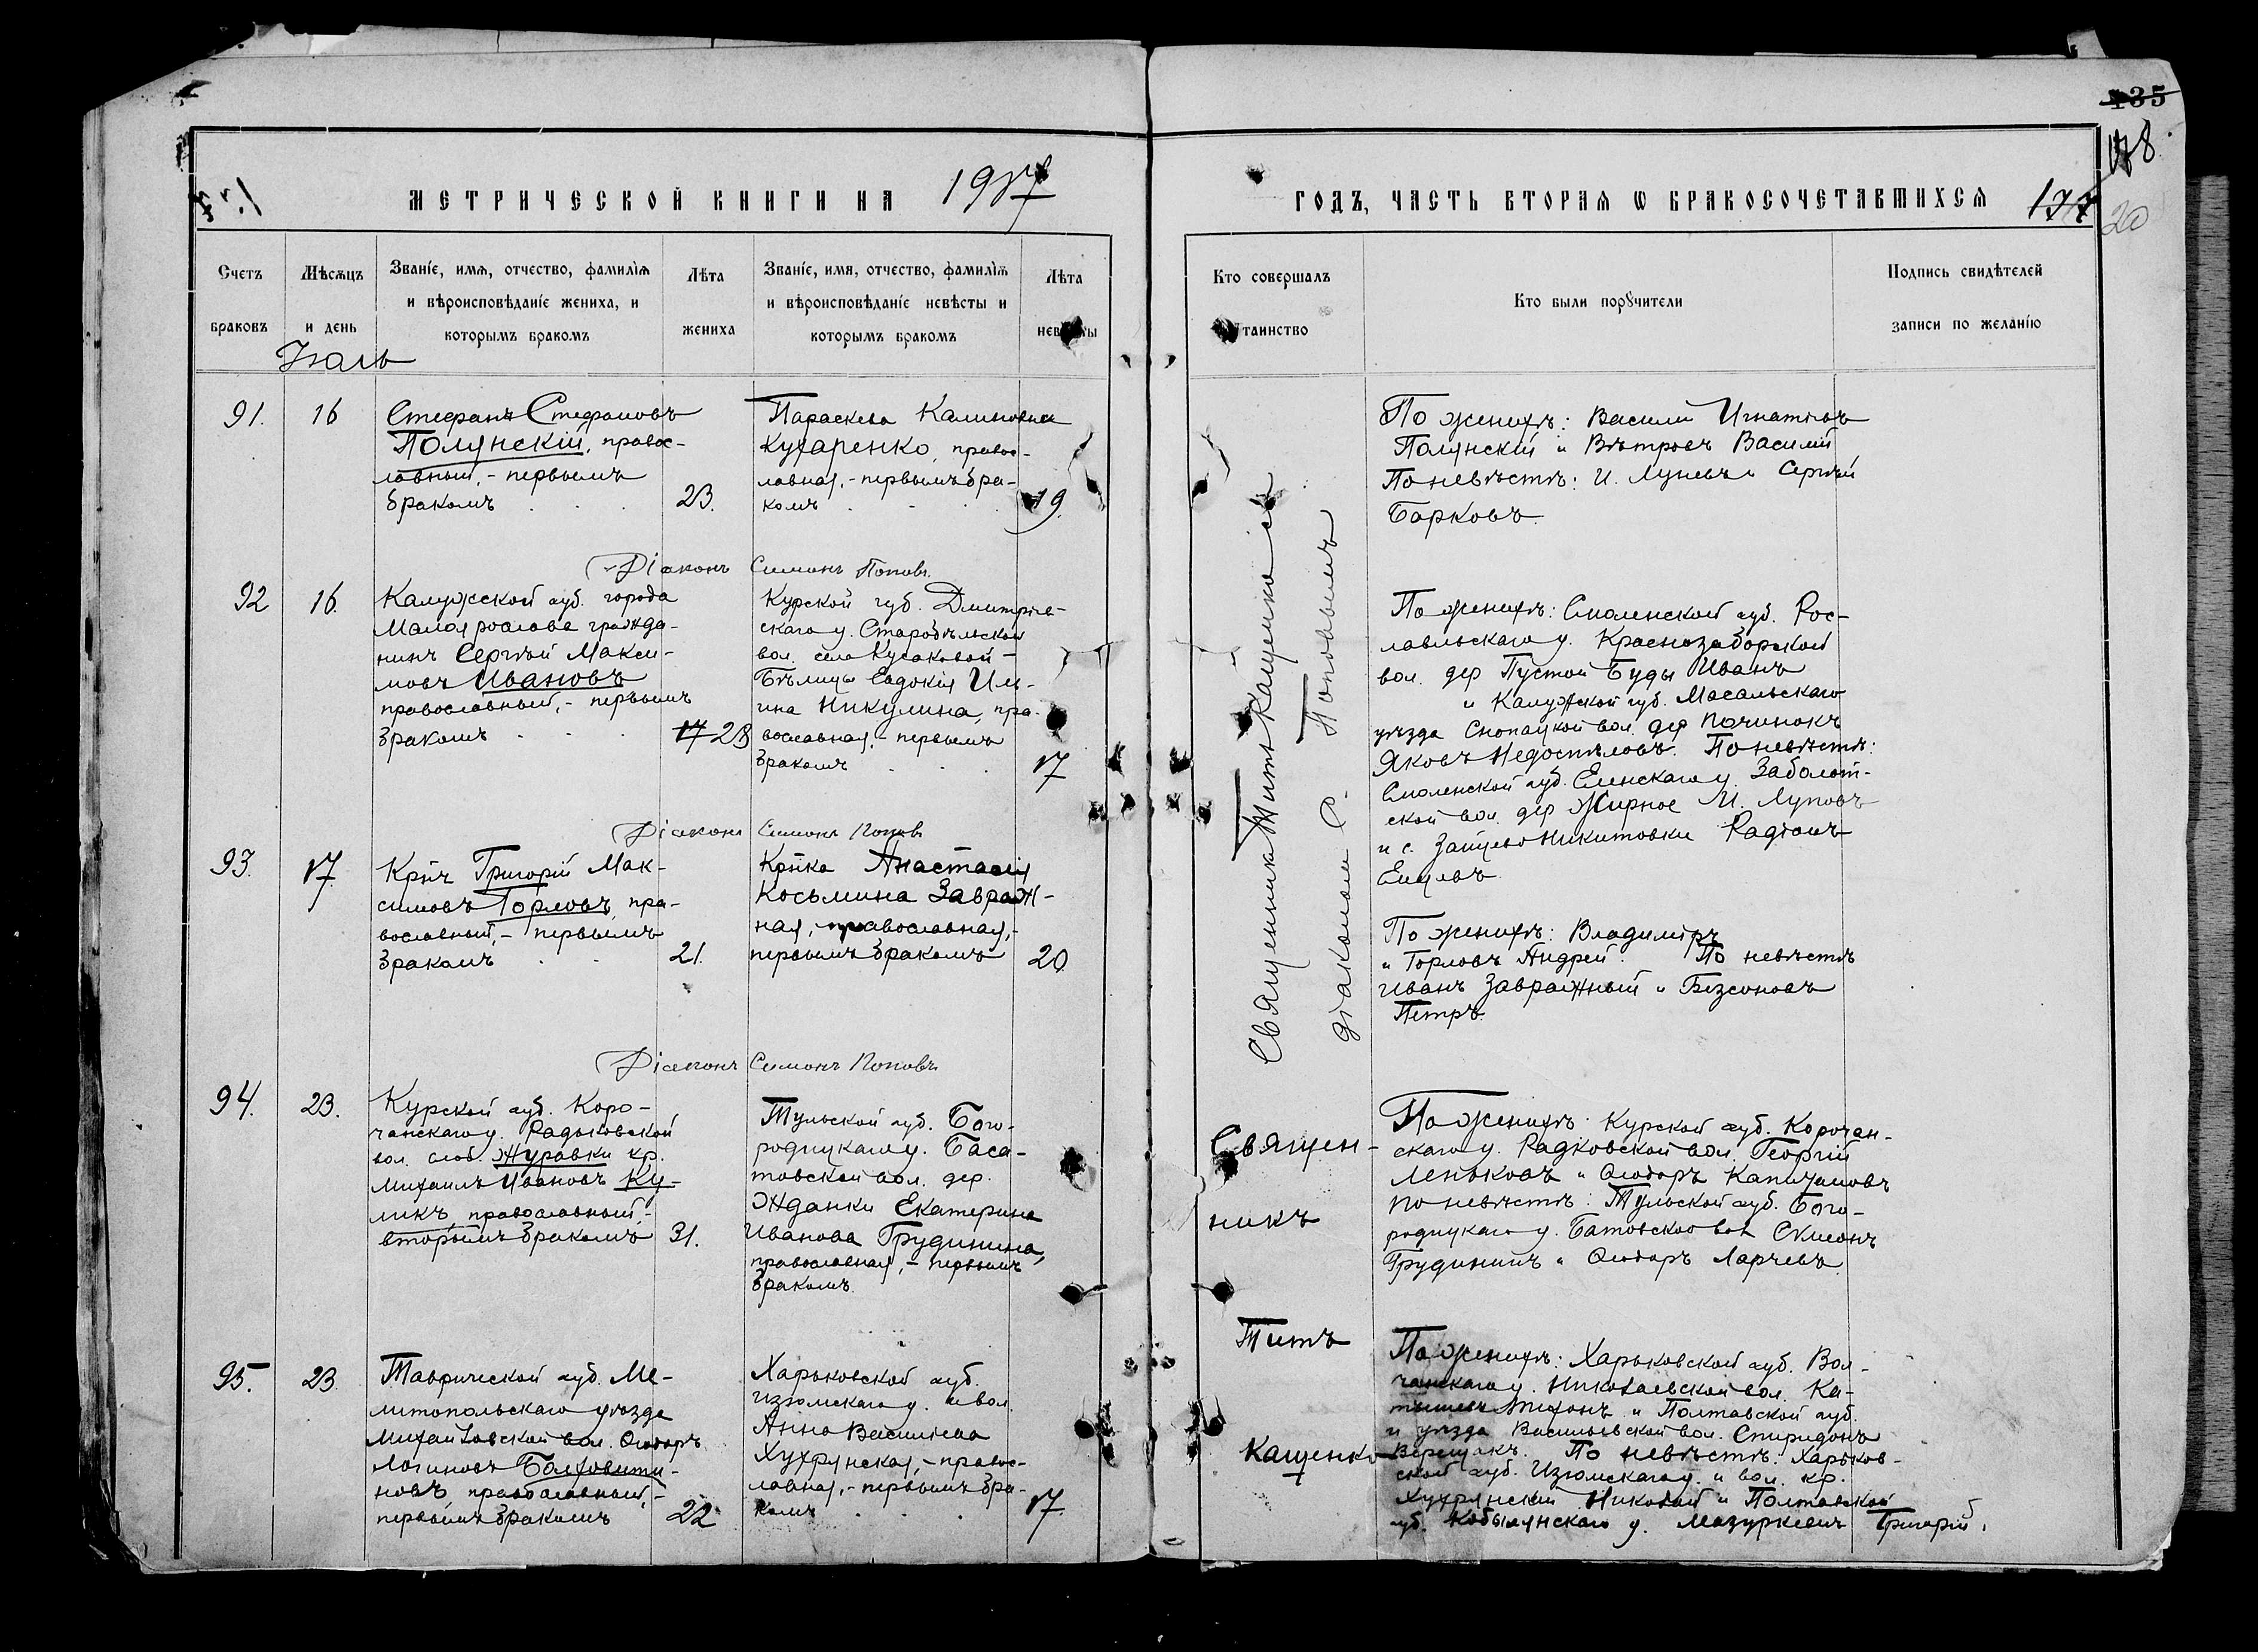 135
МЕТРИЧЕСКОЙ КНИГИ НА 1917
ГОДЪ, ЧАСТЬ ВТОРАЯ Ѡ БРАКОСОЧЕТАВШИХСЯ
20
Счетъ
браковъ
Мѣсяцъ
и день
Званіе, имя, отчество, фамилія
и вѣроисповѣданіе жениха, и
которымъ бракомъ
Лѣта
жениха
Званіе, имя, отчество, фамилія
и вѣроисповѣданіе невѣсты и
которымъ бракомъ
Лѣта
невѣсты
Кто совершалъ
таинство
Кто были порꙋчители
Подпись свидѣтелей
записи по желанію
91.
16
Стефанъ Стефановъ
Полянскій, правос-
лавный, - первымъ
бракомъ
23.
Параскева Калиновна
Кухаренко, правос-
лавная, - первымъ бра-
комъ
19.
По женихѣ: Василій Игнатіевъ
Полянскій и Вѣтровъ Василій
По невѣстѣ: И. Луневъ и Сергѣй
Барковъ.
Діаконъ Симонъ Поповъ.
92
16.
Калужской губ. города
Малоярославца гражда-
нинъ Сергѣй Макси-
мовъ Ивановъ
православный, - первымъ
бракомъ
17 23
Курской губ. Дмитріев-
скаго у. Старобѣльской
вол. села Кусаковой -
Бѣлицы Евдокія Иль-
ина Никулина, пра-
вославная, - первымъ
бракомъ
17
По женихѣ: Смоленской губ. Рос-
лавльскаго у. Краснозаборской
вол. дер Пустой Буды Иванъ
и Калужской губ. Масальскаго
уѣзда Снопацкой вол. дер Починокъ
Яковъ Недоспѣловъ. По невѣстѣ:
Смоленской губ. Елинскаго у. Заболот-
ской вол. дер Жирное И. Луновъ
и с. Зайцево Никитовки Радіонъ
Священникъ Титъ Кащенко съ
діакономъ С. Поповымъ
Діаконъ Симонъ Поповъ
93.
17.
Кр҃нъ Григорій Мак-
симовъ Горловъ, пра-
вославный, - первымъ
бракомъ
21.
Кр҃нка Анастасія
Косьмина Завраж-
ная, православная, -
первымъ бракомъ
20.
По женихѣ: Владиміръ
и Горловъ Андрей. По невѣстѣ
Иванъ Завражный и Безсоновъ
Петръ.
Діаконъ Симонъ Поповъ
94.
23.
Курской губ. Коро-
чанскаго у. Радьковской
вол. слоб. Журавки кр.
Михаилъ Ивановъ Ку-
ликъ, православный, -
вторымъ бракомъ
31.
Тульской губ. Бого-
родицкаго у. Баса-
товской вол. дер.
Жданки Екатерина
Иванова Грудинина,
православная, - первымъ
бракомъ.
Священ-
никъ
Титъ
Кащенко
По женихѣ: Курской губ. Корочан-
скаго у. Радковской вол. Георгій
Леньковъ и Ѳеодоръ Капичановъ
По невѣстѣ: Тульской губ. Бого-
родицкаго у. Батовской вол Симеонъ
Грудининъ и Ѳеодоръ Ларчевъ.
95.
23.
Таврической губ. Ме-
литопольскаго уѣзда
Михайловской вол. Ѳеодоръ
Логиновъ Болховити-
новъ православный, -
первымъ бракомъ
22
Харьковской губ.
Изюмскаго у. и вол.
Анна Василіева
Хухрянская, - правос-
лавная, - первымъ бра-
комъ
17.
По женихѣ: Харьковской губ. Вол-
чанскаго у. Николаевской вол. Ка-
тышевъ Тихонъ и Полтавской губ.
и уѣзда Васильевской вол. Спиридонъ
Верещакъ. По невѣстѣ: Харьков-
ской губ. Изюмскаго у. и вол. кр.
Хухрянскій Николай и Полтавской
губ. Кобылянскаго у. Мазуркевич Григорій.
Іюль